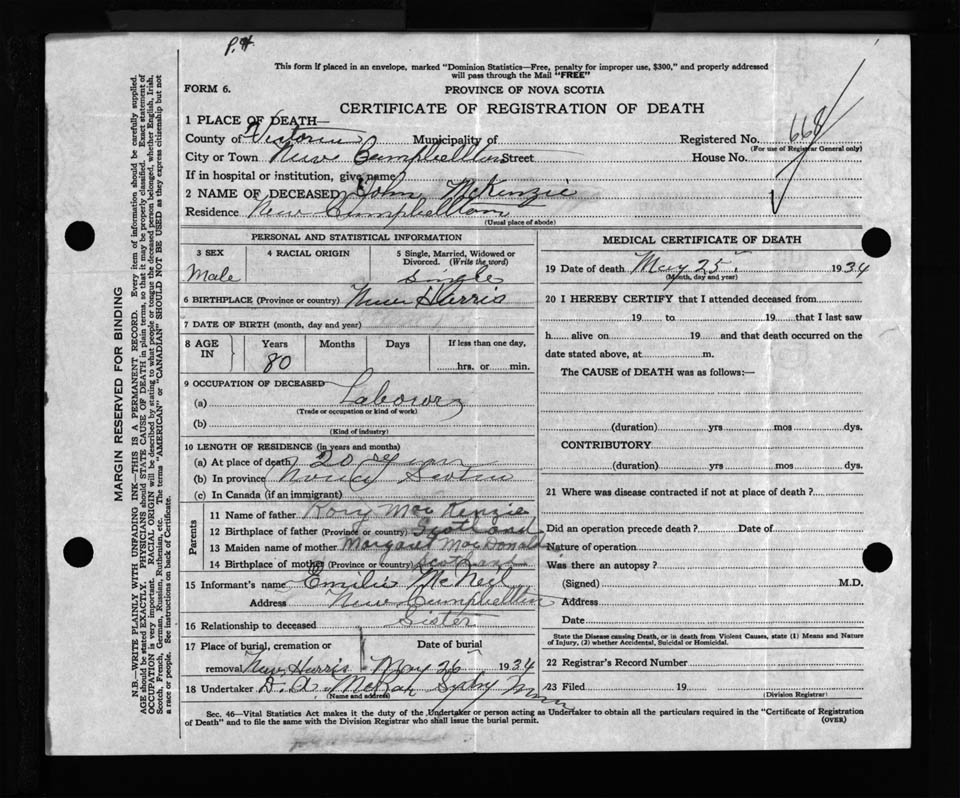 P.H
This form if placed in an envelope, marked "Dominion Statistics—Free, penalty for improper use, $300," and properly addressed
will pass through the Mail "FREE"
FORM 6.
PROVINCE OF NOVA SCOTIA
CERTIFICATE OF REGISTRATION OF DEATH
1 PLACE OF DEATH—
County of Victoria Municipality of Registered No. 668
(For use of Registrar General only)
City or Town New Campbellton Street House No.
If in hospital or institution, give name
2 NAME OF DECEASED John McKenzie
Residence New Campbellton
(Usual place of abode)
PERSONAL AND STATISTICAL INFORMATION
3 SEX 4 RACIAL ORIGIN 5 Single, Married, Widowed or Divorced. (Write the word)
Male Single
6 BIRTHPLACE (Province or country) New Harris
7 DATE OF BIRTH (month, day and year)
8 AGE IN Years Months Days If less than one day,
80 hrs. or min.
9 OCCUPATION OF DECEASED
(a) Labourer
(Trade or occupation or kind of work)
(b)
(Kind of industry)
10 LENGTH OF RESIDENCE (in years and months)
(a) At place of death 20 years
(b) In province Nova Scotia
(c) In Canada (if an immigrant)
Parents
11 Name of father Rory Mac Kenzie
12 Birthplace of father (Province or country) Scotland
13 Maiden name of mother Margaret MacDonald
14 Birthplace of mother (Province or country) Scotland
15 Informant's name Emilie McNeil
Address New Campbellton
16 Relationship to deceased Sister
17 Place of burial, cremation or removal Date of burial
New Harris May 26 1934
18 Undertaker D. A. McRae Sydney Mines
(Name and address)
MEDICAL CERTIFICATE OF DEATH
19 Date of death May 25 1934
(Month, day and year)
20 I HEREBY CERTIFY that I attended deceased from
19 to 19 that I last saw
h alive on 19 and that death occurred on the
date stated above, at m.
The CAUSE of DEATH was as follows:—
(duration) yrs mos dys.
CONTRIBUTORY
(duration) yrs mos dys.
21 Where was disease contracted if not at place of death?
Did an operation precede death? Date of
Nature of operation
Was there an autopsy?
(Signed) M.D.
Address
Date
State the Disease causing Death, or in death from Violent Causes, state (1) Means and Nature
of Injury, (2) whether Accidental, Suicidal or Homicidal.
22 Registrar's Record Number
23 Filed 19
(Division Registrar)
Sec. 46—Vital Statistics Act makes it the duty of the Undertaker or person acting as Undertaker to obtain all the particulars required in the "Certificate of Registration
of Death" and to file the same with the Division Registrar who shall issue the burial permit.
(OVER)
MARGIN RESERVED FOR BINDING
N.B.—WRITE PLAINLY WITH UNFADING INK—THIS IS A PERMANENT RECORD. Every item of information should be carefully supplied.
AGE should be stated EXACTLY. PHYSICIANS should STATE CAUSE OF DEATH in plain terms, so that it may be properly classified. Exact statement of
OCCUPATION is very important. RACIAL ORIGIN will be described by stating to what people or tongue the deceased person belonged, whether English, Irish,
Scotch, French, German, Russian, Ruthenian, etc. The terms "AMERICAN" or "CANADIAN" SHOULD NOT BE USED as they express citizenship but not
a race or people. See instructions on back of Certificate.